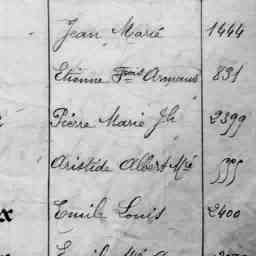 Jean Marié 1444
Etienne Fçois Armand 831
Pierre Marie Jh 2399
Aristide Albert Mie 555
x Emile Louis 2400
Emile